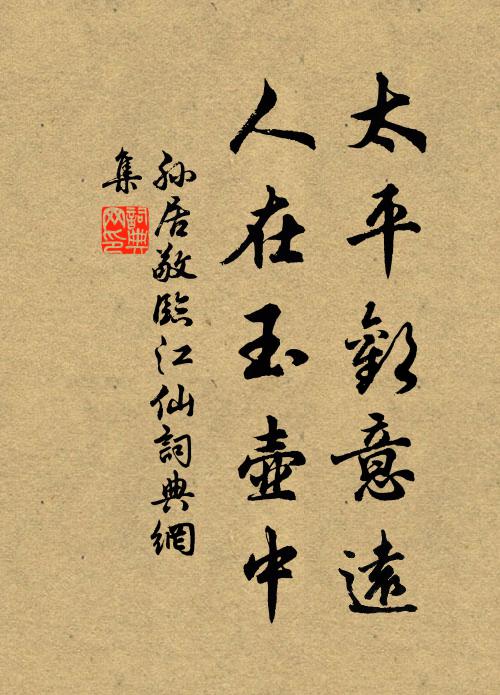 太平歡意遠
人在玉壺中
孫居敬臨江仙詞典網
集
詞典
网印